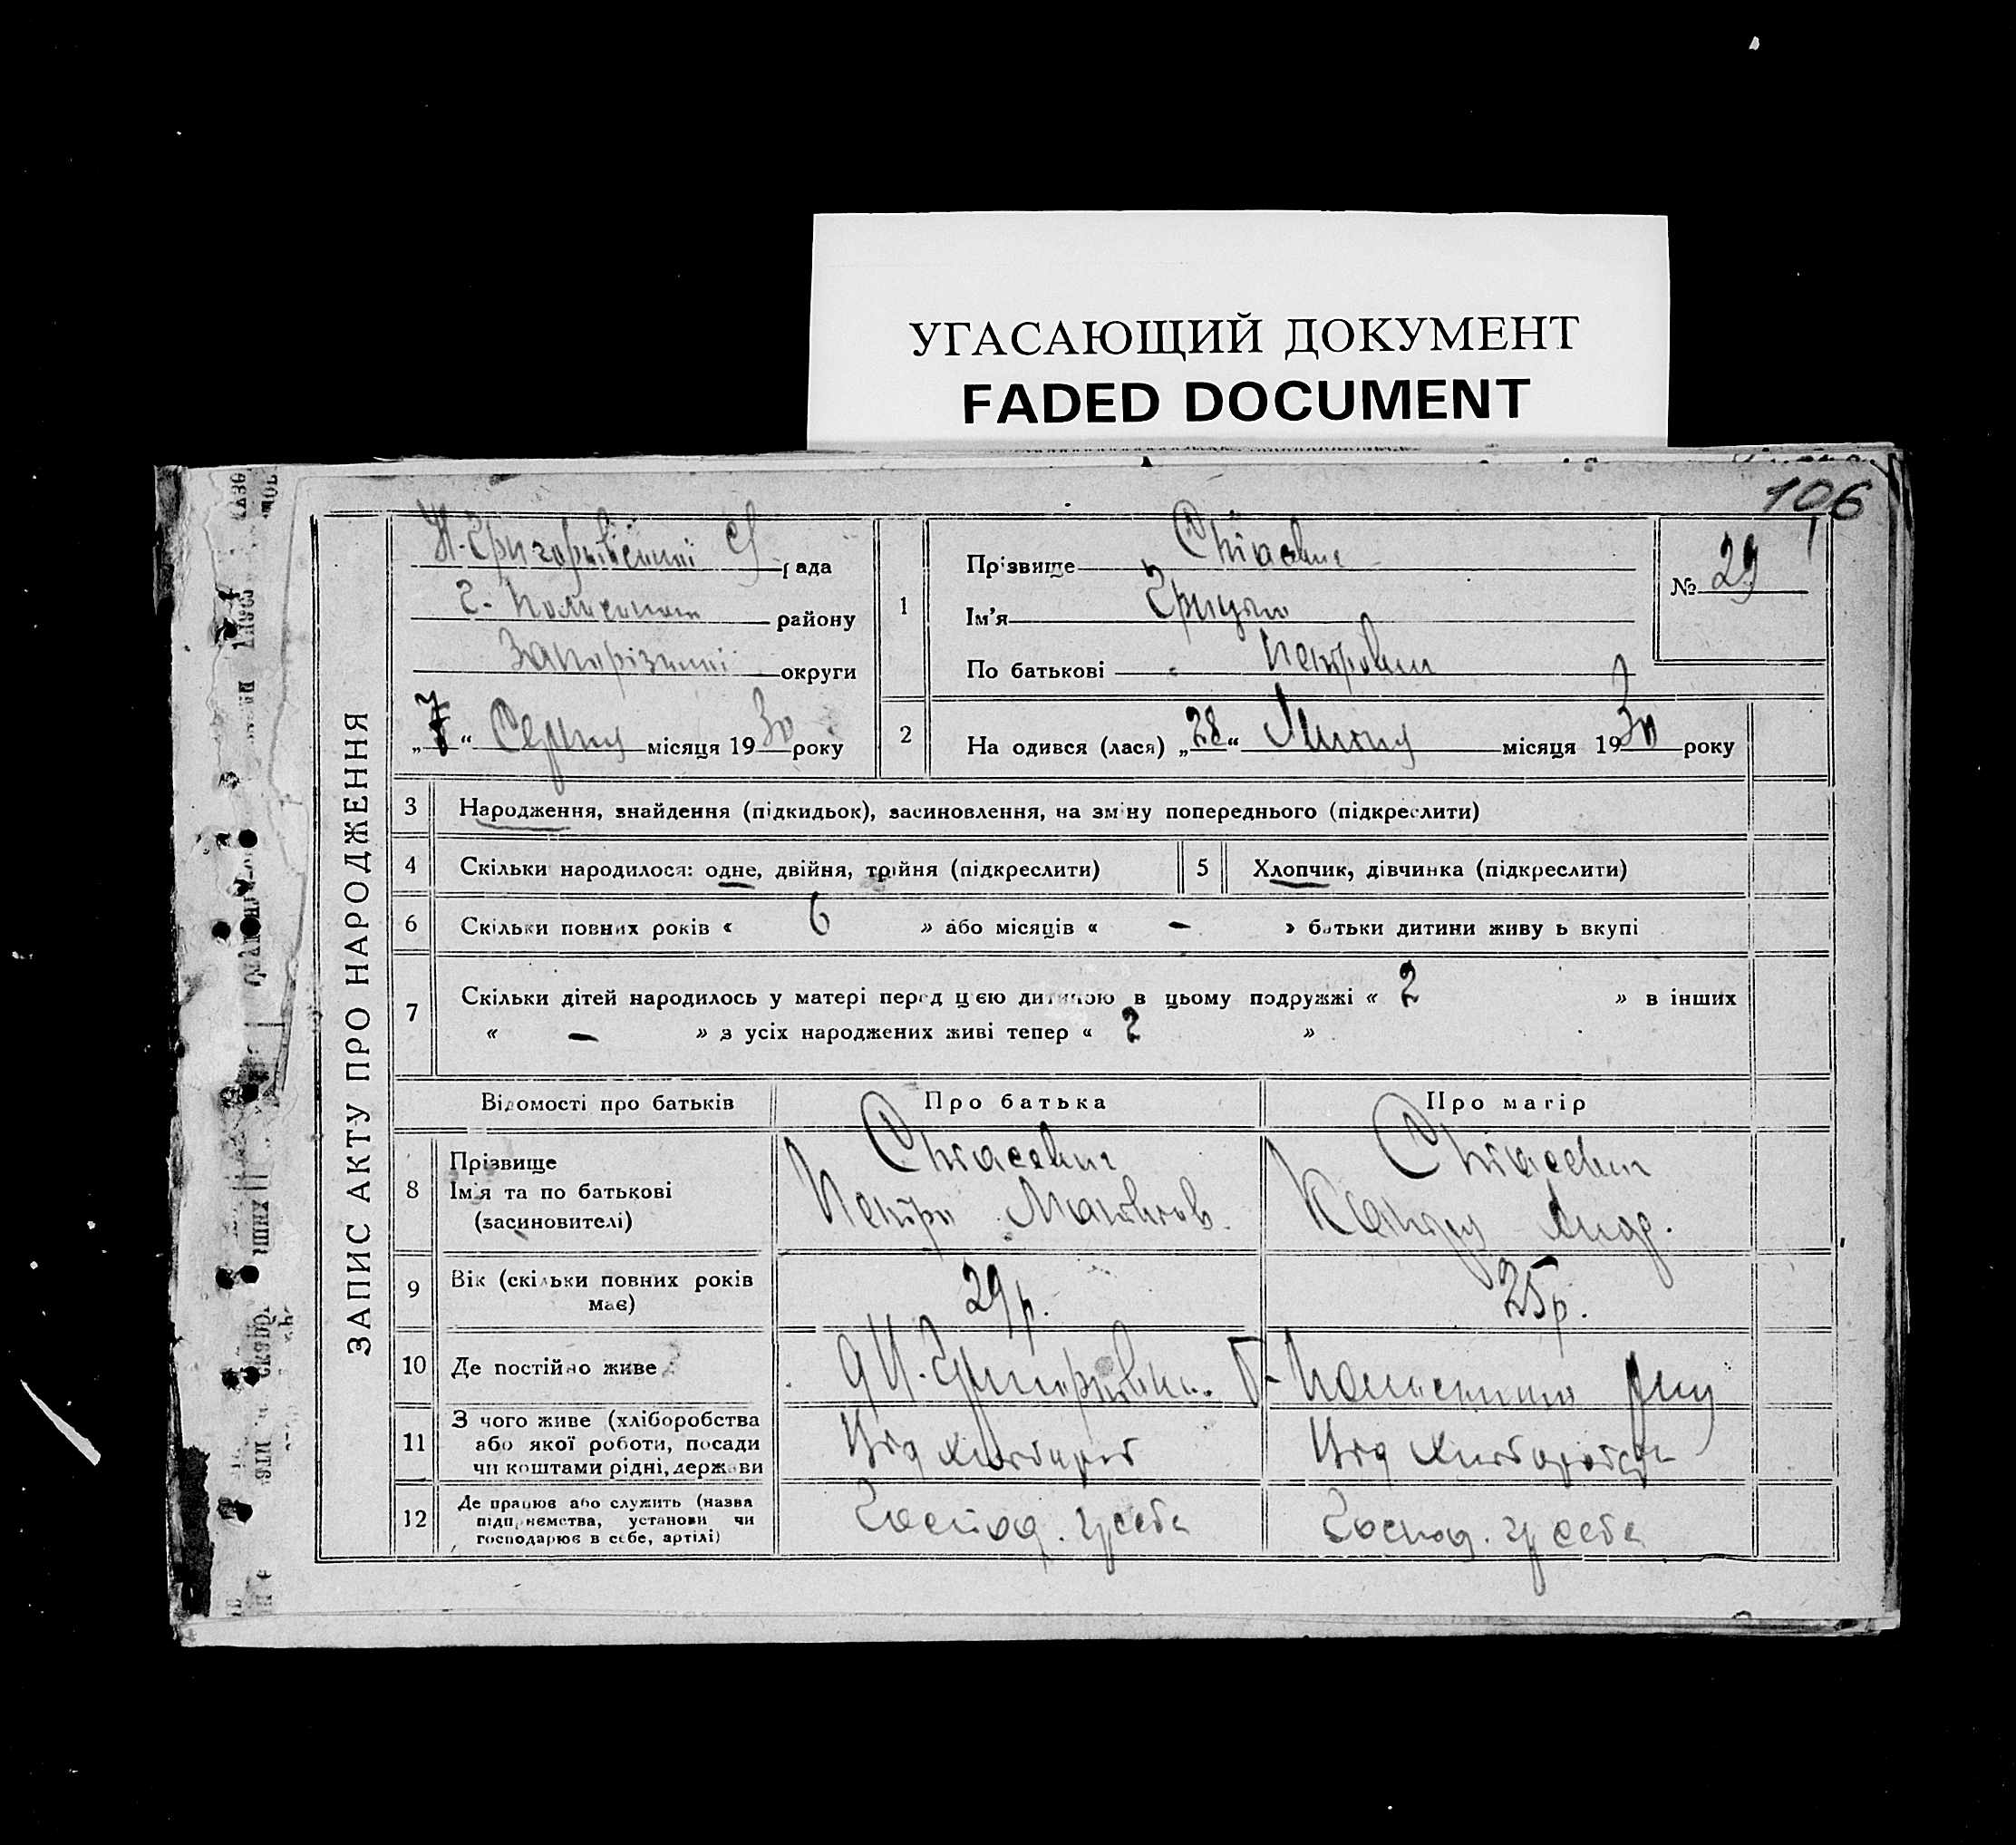 УГАСАЮЩИЙ ДОКУМЕНТ
FADED DOCUMENT
106
ЗАПИС АКТУ ПРО НАРОДЖЕННЯ
Н.-Григорівської С/ рада
Г.-Полянського району
Запорізької округи
„7“ Серпня місяця 1930 року
1
Прізвище
Ім'я Грицько
По батькові Петрович
№ 29
2
Народився (лася) „28“ Липня місяця 1930 року
3 Народження, знайдення (підкидьок), засиновлення, на зміну попереднього (підкреслити)
4 Скільки народилося: одне, двійня, трійня (підкреслити)
5 Хлопчик, дівчинка (підкреслити)
6 Скільки повних років « 6 » або місяців « – » батьки дитини живуть вкупі
7 Скільки дітей народилось у матері перед цією дитиною в цьому подружжі « 2 » в інших
« – » з усіх народжених живі тепер « 2 »
Відомості про батьків Про батька Про матір
8 Прізвище
Ім'я та по батькові Петро
(засиновителі)
9 Вік (скільки повних років має) 29 р. 25 р.
10 Де постійно живе
11 З чого живе (хліборобства
або якої роботи, посади Від хлібороб Від хлібороб
чи коштами рідні, держави
12 Де працює або служить (назва
підприємства, установи чи Господ. у себе Господ. у себе
господарює в себе, артілі)